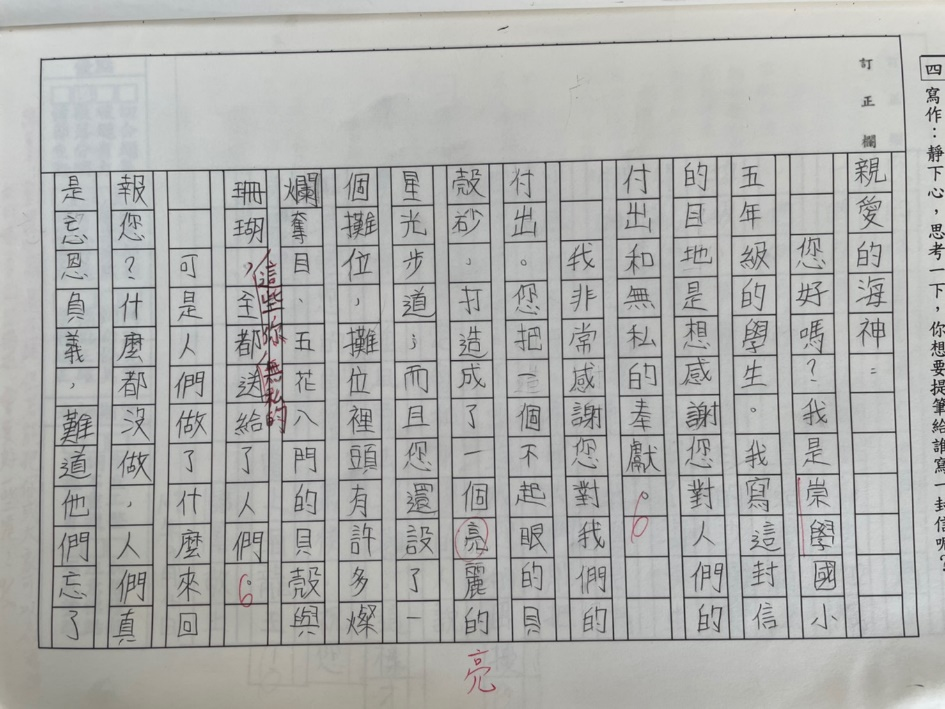 四 寫作：靜下心，思考一下，你想要提筆給誰寫一封信呢？
訂正欄
親愛的海神：
您好嗎？我是崇學國小
五年級的學生。我寫這封信
的目地是想感謝您對人們的
付出和無私的奉獻。
我非常感謝您對我們的
付出。您把一個不起眼的貝
殼砂，打造成了一個亮麗的
星光步道；而且您還設了一
個攤位，攤位裡頭有許多燦
爛奪目、五花入門的貝殼與
珊瑚，這些你無私的全都送給了人們。
可是人們做了什麼來回
報您？什麼都沒做，人們真
是忘恩負義，難道他們忘了
亮